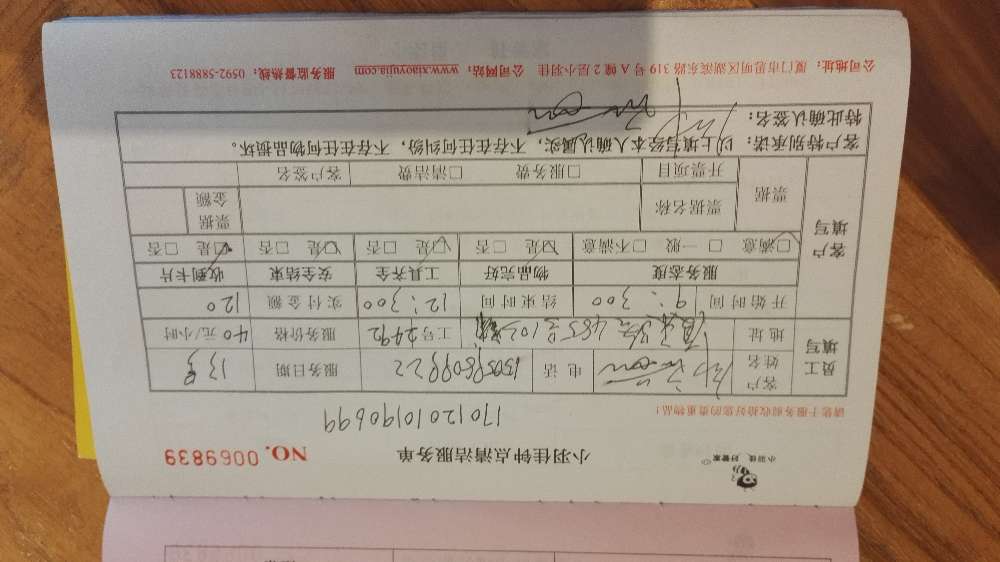 小羽佳 好管家
小羽佳钟点清洁服务单
NO. 0069839
1701201019069 9
请您于服务前收拾好您的贵重物品!
员工填写
客户姓名 电话 服务日期 13号
地址 工号 2492 服务价格 40 元/小时
开始时间 9:300 结束时间 12:300 实付金额 120
客户填写
服务态度 物品完好 工具齐全 安全结束 收到卡片
□满意 □一般 □不满意 □是 □否 □是 □否 □是 □否 □是 □否
票据 票据名称 票据金额
开票项目 □服务费 □清洁费 客户签名
客户特别承诺: 以上填写经本人确认属实,不存在任何纠纷,不存在任何物品损坏。
特此确认签名:
公司地址: 厦门市思明区湖滨东路 319 号 A 幢 2 层小羽佳 公司网站: www.xiaoyujia.com 服务监督热线: 0592-5888123